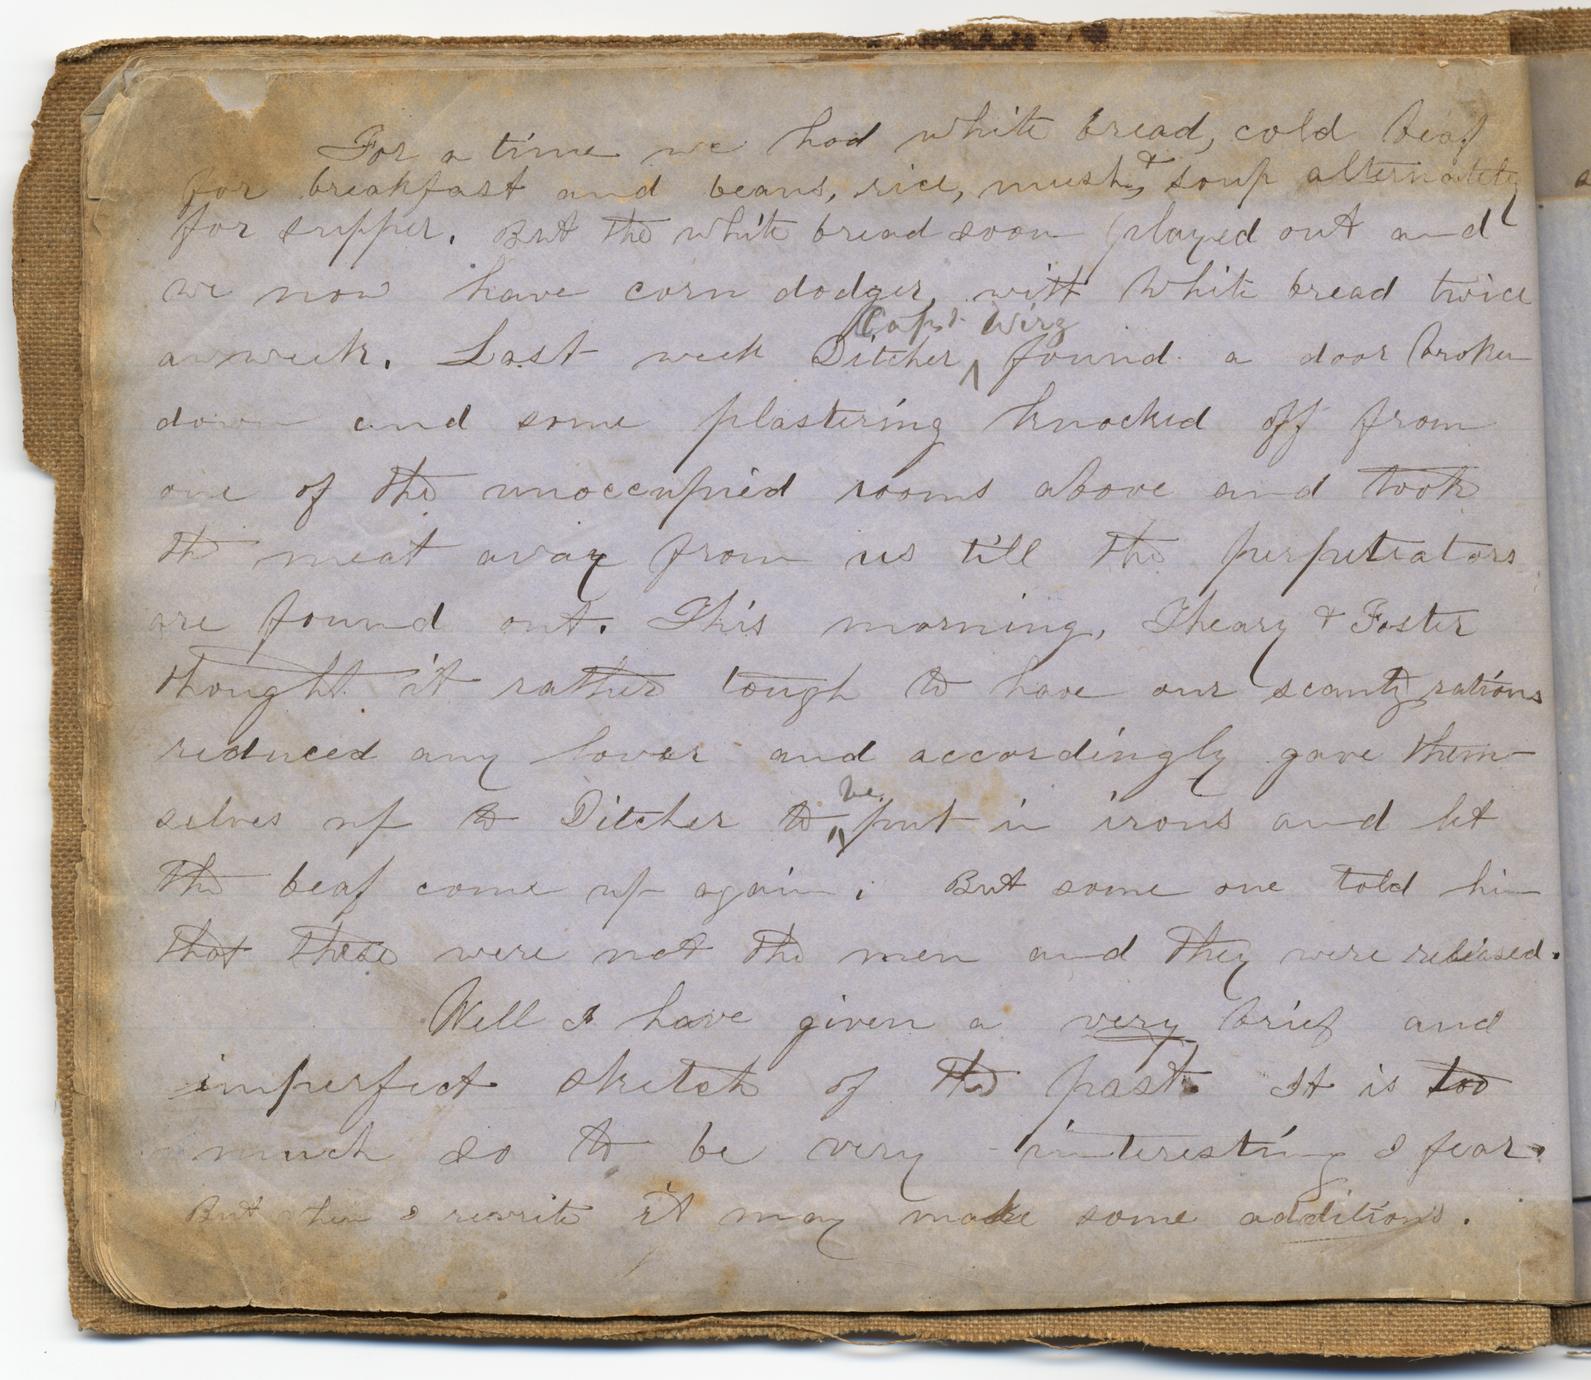 For a time we had white bread, cold beaf
for breakfast and beans, rice, mush, & soup alternately
for supper. But the white bread soon played out and
we now have corn dodger, with white bread twice
a week. Last week Ditcher ^ Capt. Wirz found a door broken
down and some plastering knocked off from
one of the unoccupied rooms above and took
the meat away from us till the perpetrators
are found out. This morning, Gheary & Foster
thought it rather tough to have our scanty rations
reduced any lower and accordingly gave them-
selves up to Ditcher to ^ be put in irons and let
the beaf come up again; But some one told him
that these were not the men and they were released.
Well I have given a very brief and
imperfect sketch of the past. It is too
much so to be very interesting I fear.
But when I rewrite it may make some additions.